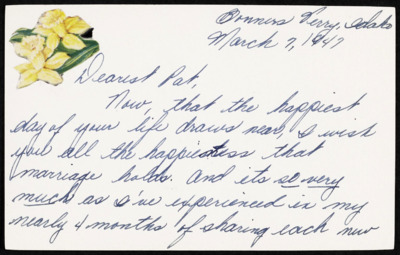 Bonners Ferry, Idaho
March 7, 1947
Dearest Pat,
Now, that the happiest
day of your life draws near, I wish
you all the happiestess that
marriage holds. And its so very
much as I've experienced in my
nearly 4 months of sharing each new